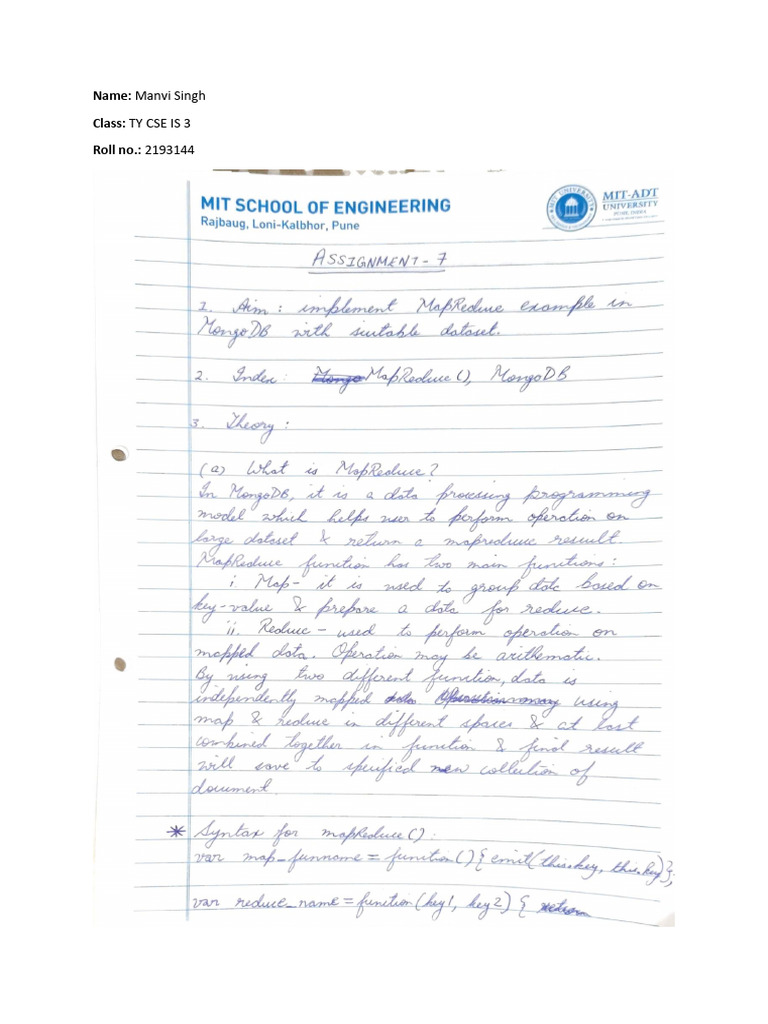 Name: Manvi Singh
Class: TY CSE IS 3
Roll no.: 2193144
MIT SCHOOL OF ENGINEERING
Rajbaug, Loni-Kalbhor, Pune
MIT-ADT
UNIVERSITY
PUNE, INDIA
ASSIGNMENT - 7
1. Aim : implement MapReduce example in
MongoDB with suitable dataset.
2. Index : MapReduce(), MongoDB
3. Theory :
(a) What is MapReduce?
In MongoDB, it is a data processing programming
model which helps user to perform operation on
large dataset & return a mapreduce result
MapReduce function has two main functions :
i. Map- it is used to group data based on
key-value & prepare a data for reduce.
ii. Reduce - used to perform operation on
mapped data. Operation may be arithematic.
By using two different function, data is
independently mapped using
map & reduce in different spaces & at last
combined together in function & final result
will save to specified new collection of
document
* Syntax for mapReduce() :
var map_funname = function() { emit(this.key, this.key)};
var reduce_name = function(key1, key2) {